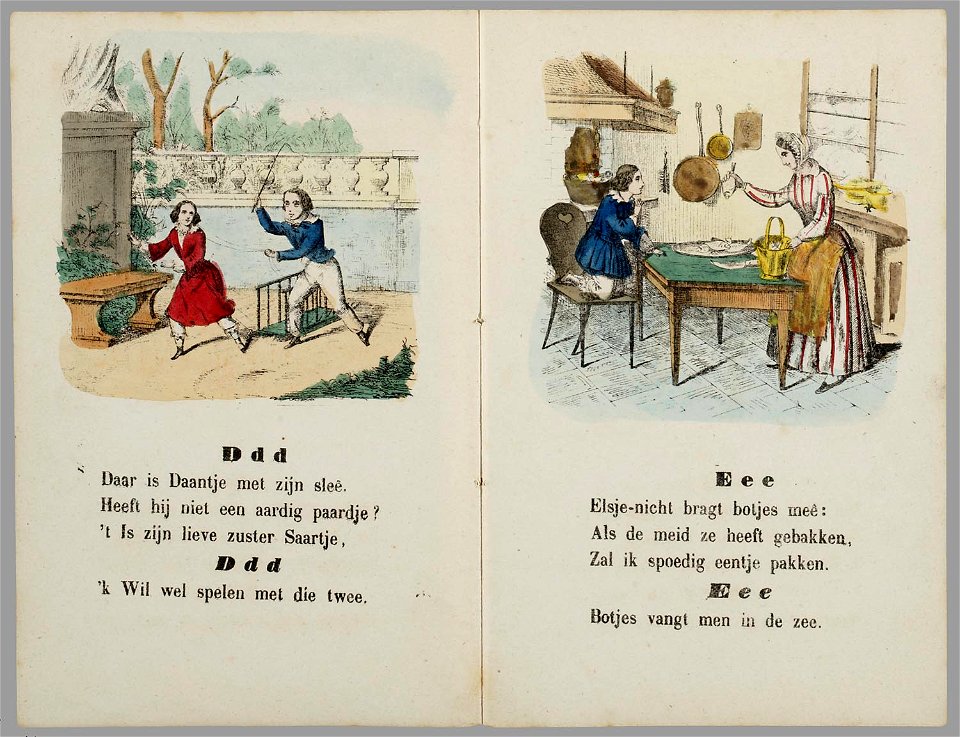 D d d
Daar is Daantje met zijn sleê.
Heeft hij niet een aardig paardje?
't Is zijn lieve zuster Saartje,
D d d
'k Wil wel spelen met die twee.
E e e
Elsje-nicht bragt botjes meê:
Als de meid ze heeft gebakken,
Zal ik spoedig eentje pakken.
E e e
Botjes vangt men in de zee.